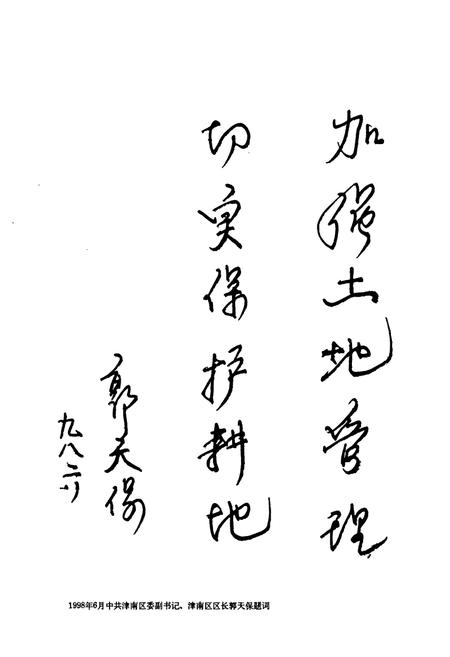 加强土地管理
切实保护耕地
郭天保
九八.六
1998年6月中共津南区委副书记、津南区区长郭天保题词